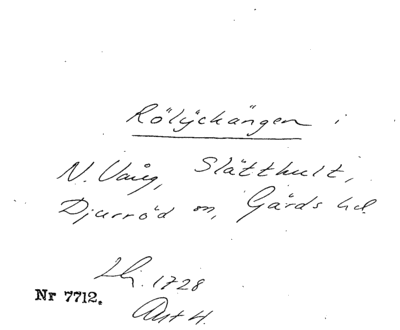 Rölyckängen i
N. Vång, Slätthult,
Djurröd sn, Gärds hd.
Lhj. 1728
Nr 7712.
Akt 4.